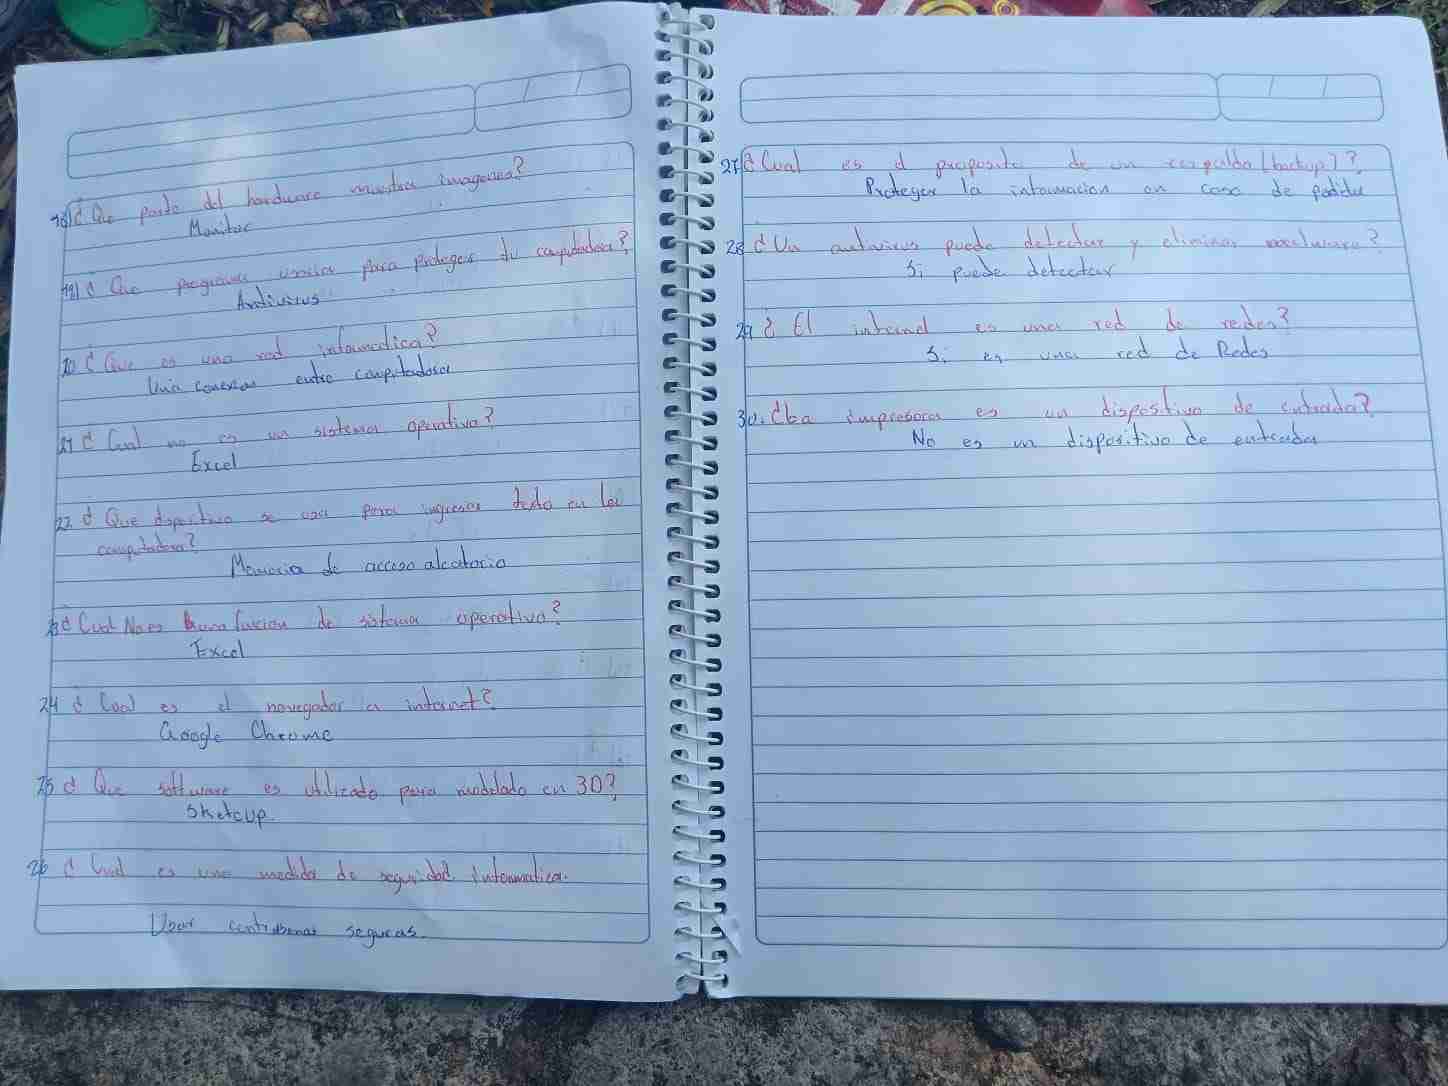 18) ¿Que parte del hardware muestra imagenes?
Monitor
19) ¿ Que programa para proteger tu computadora?
Antivirus
20 ¿ Que es una red informatica?
Una conexion entre computadora
21 ¿ Cual no es un sistema operativo?
Excel
22. ¿ Que dispositivo se usa para ingresar texto en la
computadora?
Memoria de acceso aleatorio
23 ¿ Cual No es una funcion de sistema operativo?
Excel
24 ¿ Cual es el navegador a internet?
Google Chrome
25 ¿ Que software es utilizado para modelado en 3D?
Sketcup.
26 ¿ Cual es una medida de seguridad informatica.
Usar contraseñas seguras.
27 ¿ Cual es el proposito de un respaldo (backup)?
Proteger la informacion en caso de
28 ¿ Un antivirus puede detectar y eliminar?
Si puede detectar
29 ¿ El internet es una red de redes?
Si es una red de Redes
30. ¿La impresora es un dispositivo de entrada?
No es un dispositivo de entrada